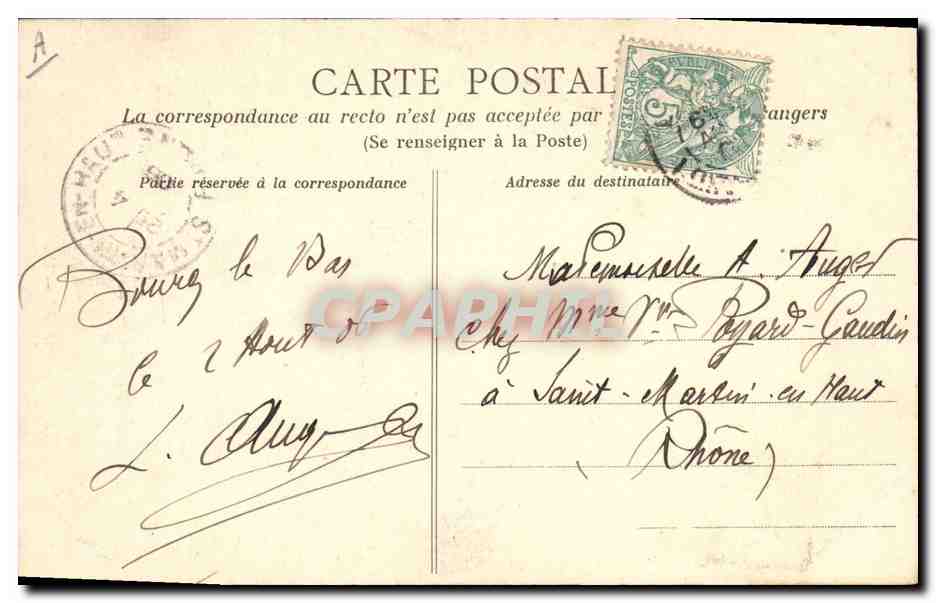 A
CARTE POSTAL
La correspondance au recto n'est pas acceptée par
angers
(Se renseigner à la Poste)
Partie réservée à la correspondance
Adresse du destinataire
POSTES
5
EN-HAUT
Bourg le Bas
le 2 Aout 05
L. Auger
Mademoiselle A. Auger
Chez Mme Vve Poyard-Gaudin
à Saint-Martin-en Haut
(Rhône)
CPAPHIL